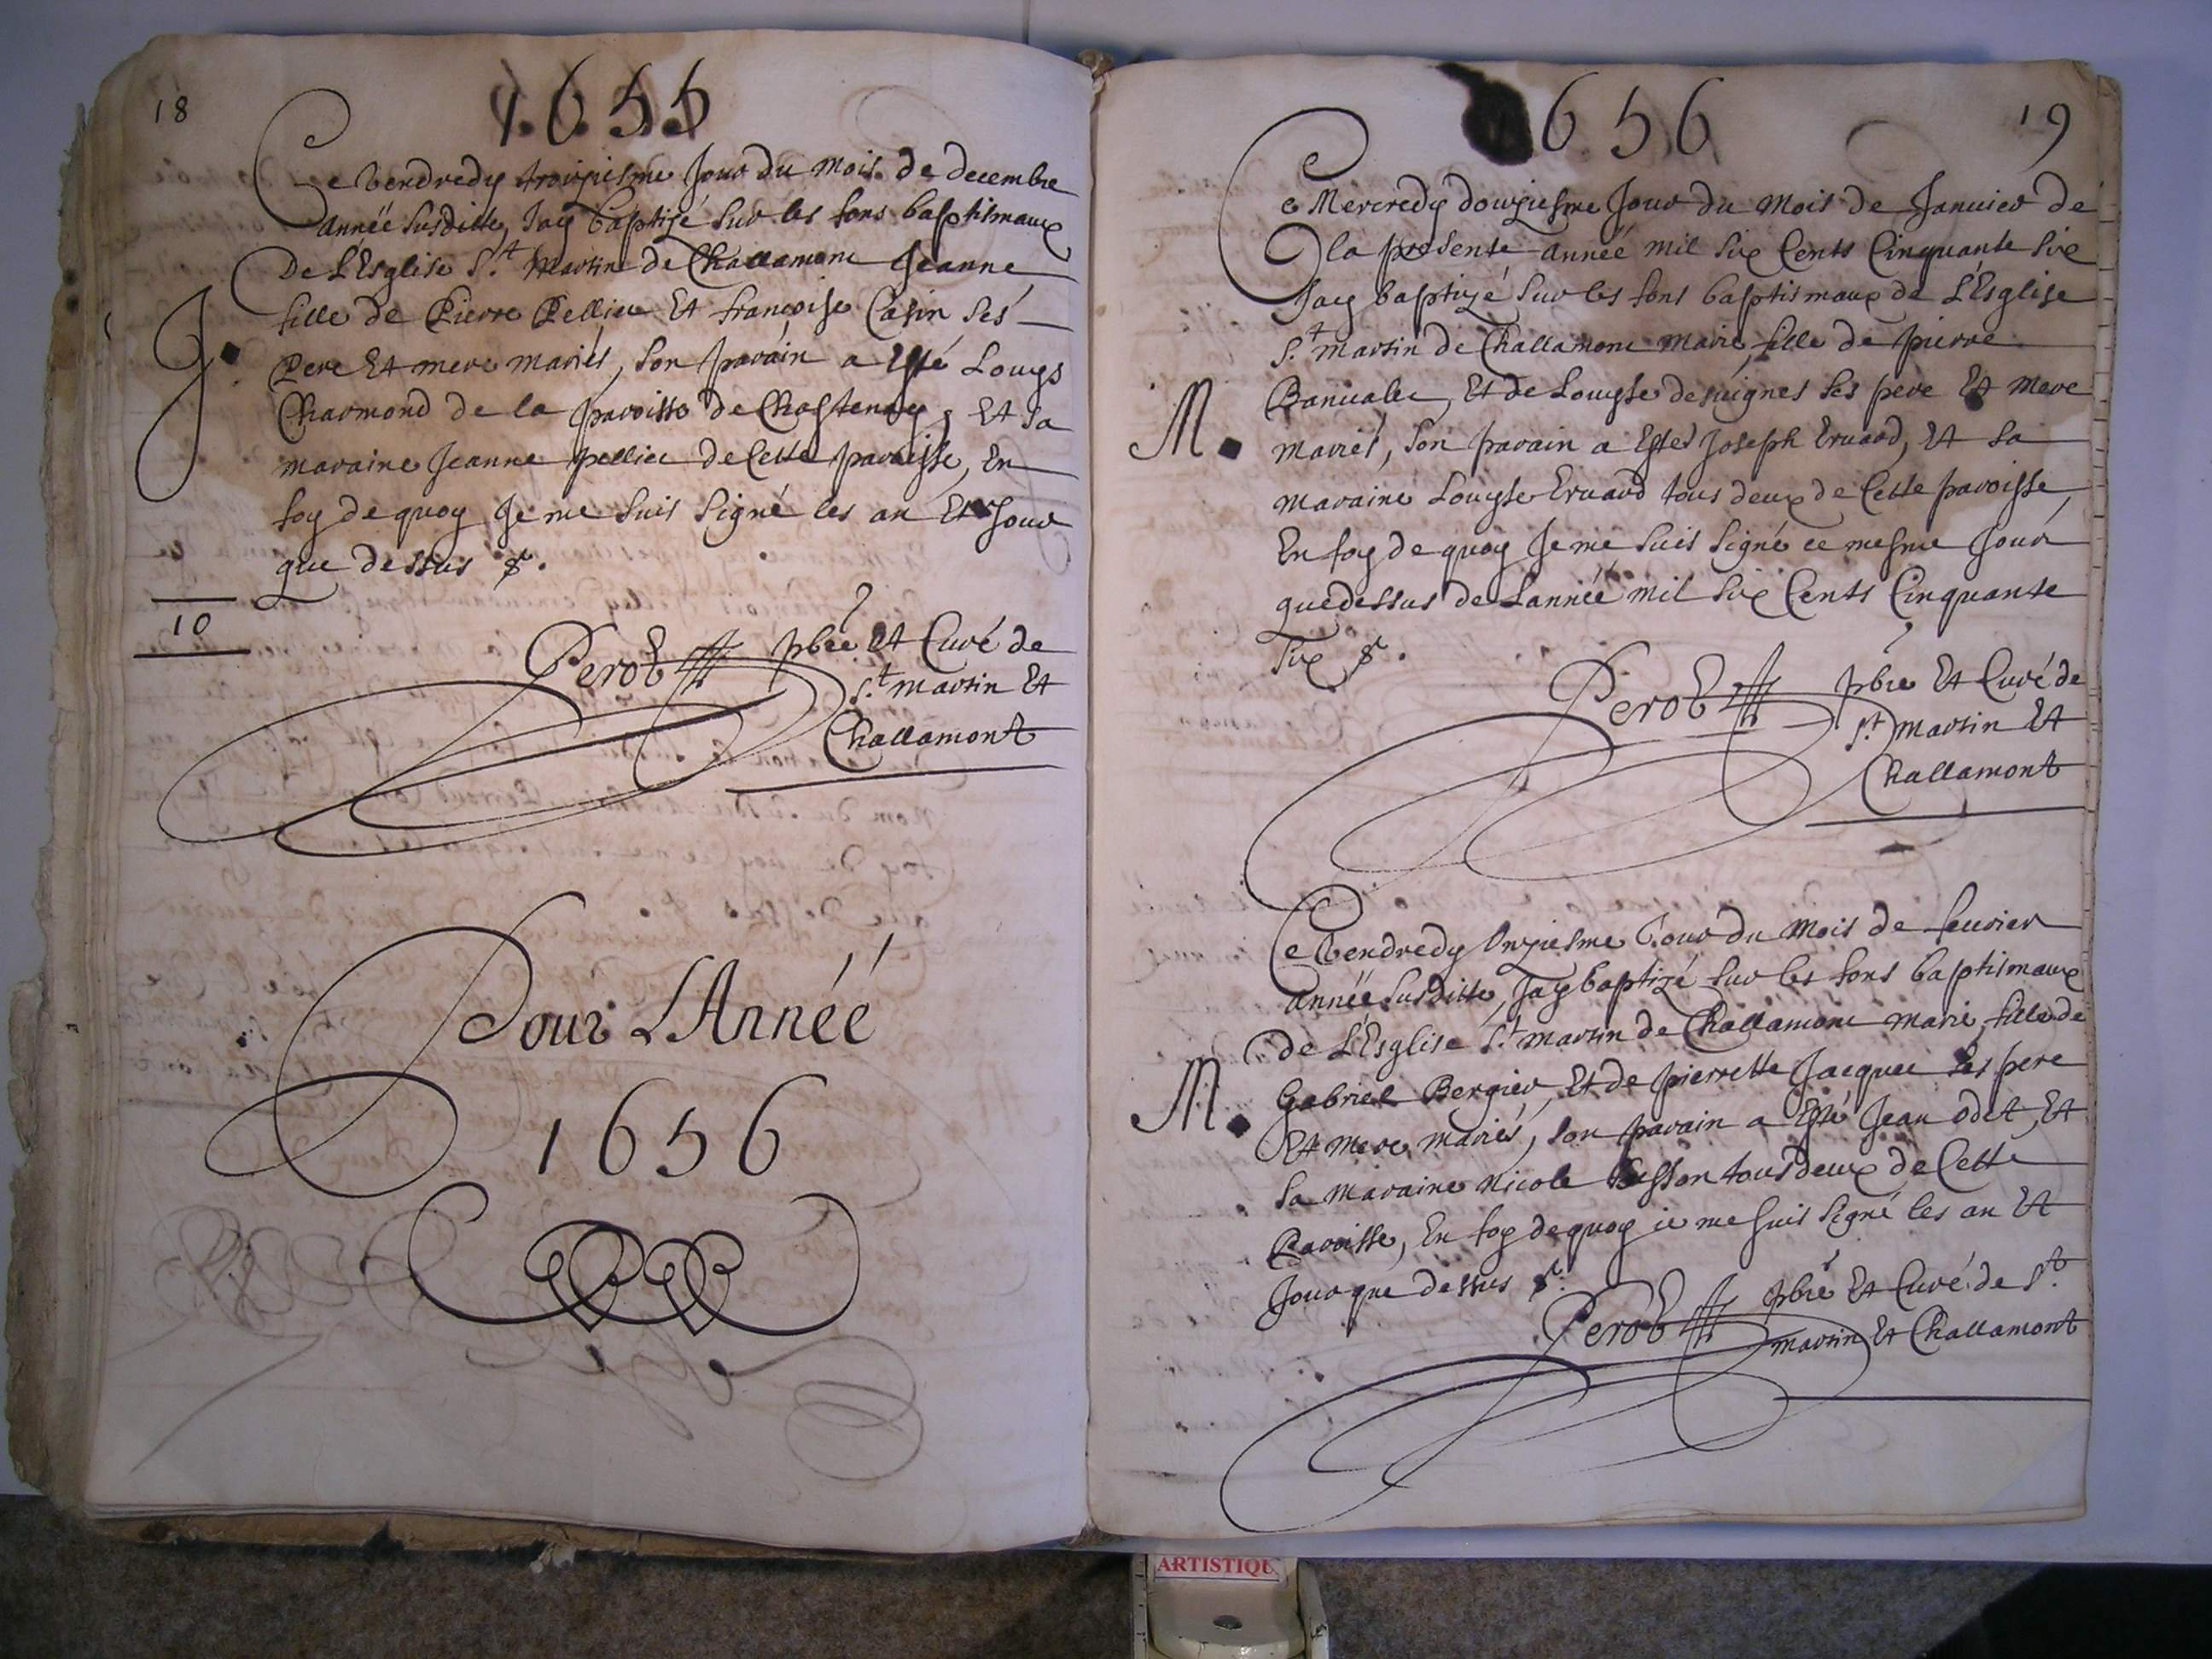 18
1655
Ce Vendredy troiziesme Jour du Mois de decembre
Année susditte, Jay baptizé sur les fons baptismaux
De L'Esglise S.t Martin de Challamont Jeanne
fille de Pierre Pellier Et francoise Casin ses
J.
Pere Et mere mariés, son parain a Esté Louys
Charmond de la paroisse de Chastenay, Et sa
maraine Jeanne pellier de Cette paroisse, En
foy de quoy Je me suis signé les an Et Jour
que dessus
10
Perot pbre et Curé de
S.t martin Et
Challamont
Pour L'Année
1656
1656
19
Ce Mercredy douziesme Jour du Mois de Januier de
la presente année mil six Cents Cinquante six
Jay baptizé sur les fons baptismaux de L'Esglise
S.t martin de Challamont marie, fille de pierre
Et de Louyse desuignes ses pere Et mere
M.
mariés, son parain a Esté Joseph Eruard, Et sa
maraine Louyse Eruard tous deux de Cette paroisse,
En foy de quoy Je me suis signé ce mesme Jour
que dessus de L'année mil six Cents Cinquante
six
Perot pbre Et Curé de
S.t martin Et
Challamont
Ce Vendredy Onziesme Jour du Mois de feurier
année susditte, Jay baptizé sur les fons baptismaux
de L'Esglise S.t martin de Challamont marie, fille de
M.
Gabriel Bergier, Et de pierrette Jacquee ses pere
Et mere mariés, son parain a Esté Jean odet, Et
sa maraine Nicole tous deux de Cette
Paroisse, En foy de quoy ie me suis signé les an Et
Jour que dessus
Perot pbre Et Curé de S.t
martin Et Challamont
ARTISTIQU